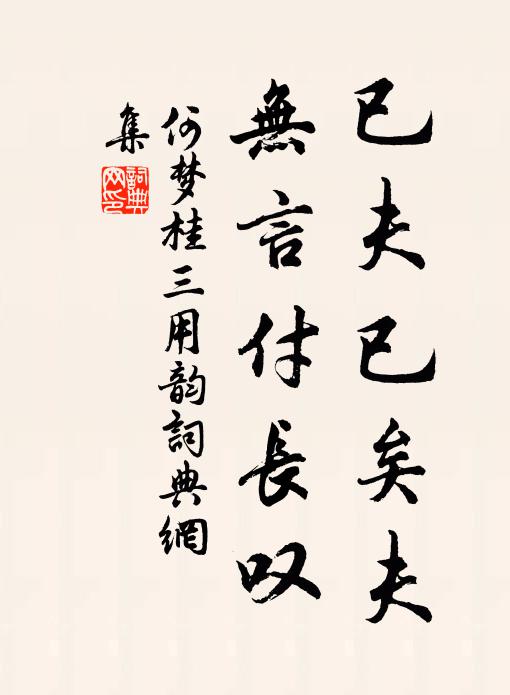 已夫已矣夫
無言付長叹
何梦桂三用韵詞典網
集
詞典網印